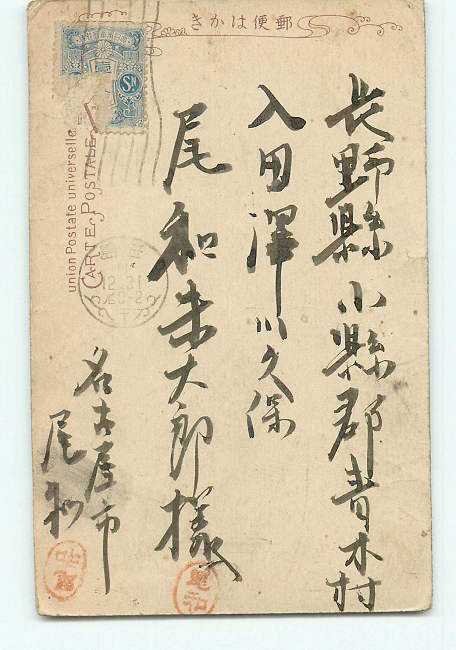 きかは便郵
長野縣小縣郡青木村
入田澤川久保
尾和末太郎様
名古屋市
尾和
union Postale universelle
CARTE POSTALE
Sn
12.31
尾和